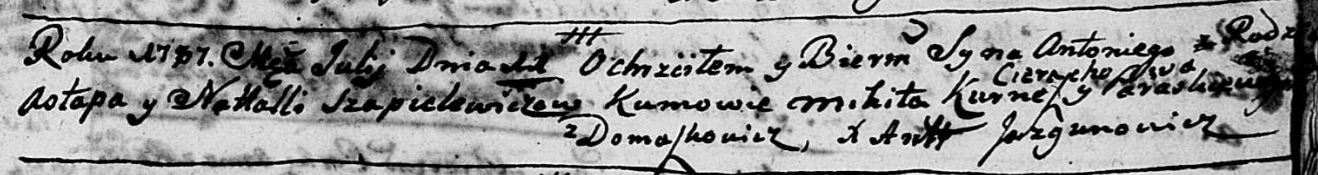 Roku 1787. Mca Julij Dnia Ochrzciłem y Bierm Syna Antoniego z Rodz
Astapa y Nattalli Szapielewiczow Kumowie Mikita Kurnesz y Paraskiewija
Cierachowa
z Domaszkowicz, X Antt Jazgunowicz